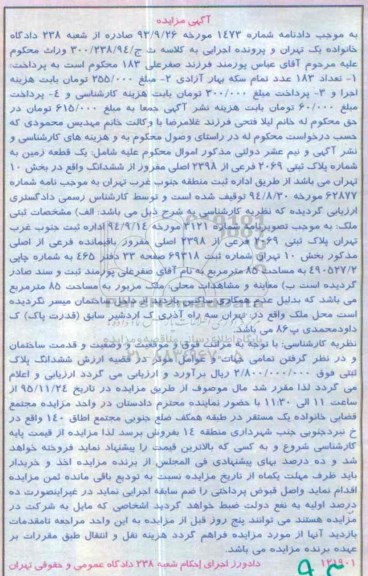 آگهی مزایده
به موجب دادنامه شماره ۱۴۷۳ مورخه ۹۳/۹/۲۶ صادره از شعبه ۲۳۸ دادگاه
خانواده یک تهران و پرونده اجرایی به کلاسه ث ج/۳۰۰/۲۳۸/۹۴ وراث محکوم
علیه مرحوم آقای عباس پوزمند فرزند صفرعلی ۱۸۳ محکوم است به پرداخت:
۱- تعداد ۱۸۳ عدد تمام سکه بهار آزادی ۲- مبلغ ۲۵۵/۰۰۰ تومان بابت هزینه
اجرا و ۳- پرداخت مبلغ ۳۰۰/۰۰۰ تومان بابت هزینه کارشناسی و ۴- پرداخت
مبلغ ۶۰/۰۰۰ تومان بابت هزینه نشر آگهی جمعا به مبلغ ۶۱۵/۰۰۰ تومان در
حق محکوم له خانم لیلا فتحی فرزند غلامرضا با وکالت خانم مهدیس محمودی که
حسب درخواست محکوم له در راستای وصول محکوم به و هزینه های کارشناسی و
نشر آگهی و نیم عشر دولتی مذکور اموال محکوم علیه شامل: یک قطعه زمین به
شماره پلاک ثبتی ۲۰۶۹ فرعی از ۲۳۹۸ اصلی مفروز از ششدانگ واقع در بخش ۱۰
تهران می باشد از طریق اداره ثبت منطقه جنوب غرب تهران به موجب نامه شماره
۶۲۸۷۷ مورخه ۹۴/۸/۳۰ توقیف شده است و توسط کارشناس رسمی دادگستری
ارزیابی گردیده که نظریه کارشناسی به شرح ذیل می باشد: الف) مشخصات ثبتی
ملک: به موجب تصویر نامه شماره ۳۱۲۱ مورخه ۹۴/۹/۱۴ اداره ثبت جنوب غرب
تهران پلاک ثبتی ۲۰۶۹ فرعی از ۲۳۹۸ اصلی مفروز باقیمانده فرعی از اصلی
مذکور بخش ۱۰ تهران شماره ثبت ۶۹۳۱۸ صفحه ۳۳ دفتر ۴۶۵ به شماره چاپی
۴۹۰۵۲۷/۲ به مساحت ۸۵ مترمربع به نام آقای صفرعلی پوزمند ثبت و سند صادر
گردیده است ب) معاینه و مشاهدات محلی: ملک مزبور به مساحت ۸۵ مترمربع
می باشد که بدلیل عدم همکاری ساکنین بازدید از داخل ساختمان میسر نگردیده
است محل ملک واقع در تهران سه راه آذری ک اردشیر سابق (قدرت پاک) ک
داودمحمدی پ۸۶ می باشد.
نظریه کارشناسی: با توجه به مراتب فوق و موقعیت وضعیت و قدمت ساختمان
و در نظر گرفتن تمامی جهات و عوامل موثر در قضیه ارزش ششدانگ پلاک
ثبتی فوق ۳/۸۰۰/۰۰۰/۰۰۰ ریال برآورد و ارزیابی می گردد ارزیابی و اعلام
می گردد لذا مقرر شد مال موصوف از طریق مزایده در تاریخ ۹۵/۱۱/۲۴ از
ساعت ۱۱ الی ۱۱:۳۰ با حضور نماینده محترم دادستان در واحد مزایده مجتمع
قضایی خانواده یک مستقر در طبقه همکف ضلع جنوبی مجتمع اطاق ۱۴۰ واقع در
خ نبردجنوبی جنب شهرداری منطقه ۱۴ بفروش برسد لذا مزایده از قیمت پایه
کارشناسی شروع و به کسی که بالاترین قیمت را پیشنهاد نماید فروخته خواهد
شد و ده درصد بهای پیشنهادی فی المجلس از برنده مزایده اخذ و خریدار
باید ظرف مهلت یکماه از تاریخ مزایده نسبت به تودیع باقی مانده ثمن مزایده
اقدام نماید واصل قبوض پرداختی را ضم سابقه اجرایی نماید در غیراینصورت ده
درصد اولیه به نفع دولت ضبط خواهد گردید اشخاصی که مایل به شرکت در
مزایده هستند می توانند پنج روز قبل از مزایده به این واحد مراجعه تامقدمات
بازدید آنها از مورد مزایده فراهم گردد هزینه نقل و انتقال طبق مقررات بر
عهده برنده مزایده می باشد.
۱۲۱۹۰۱ دادورز اجرای احکام شعبه ۲۳۸ دادگاه عمومی و حقوقی تهران